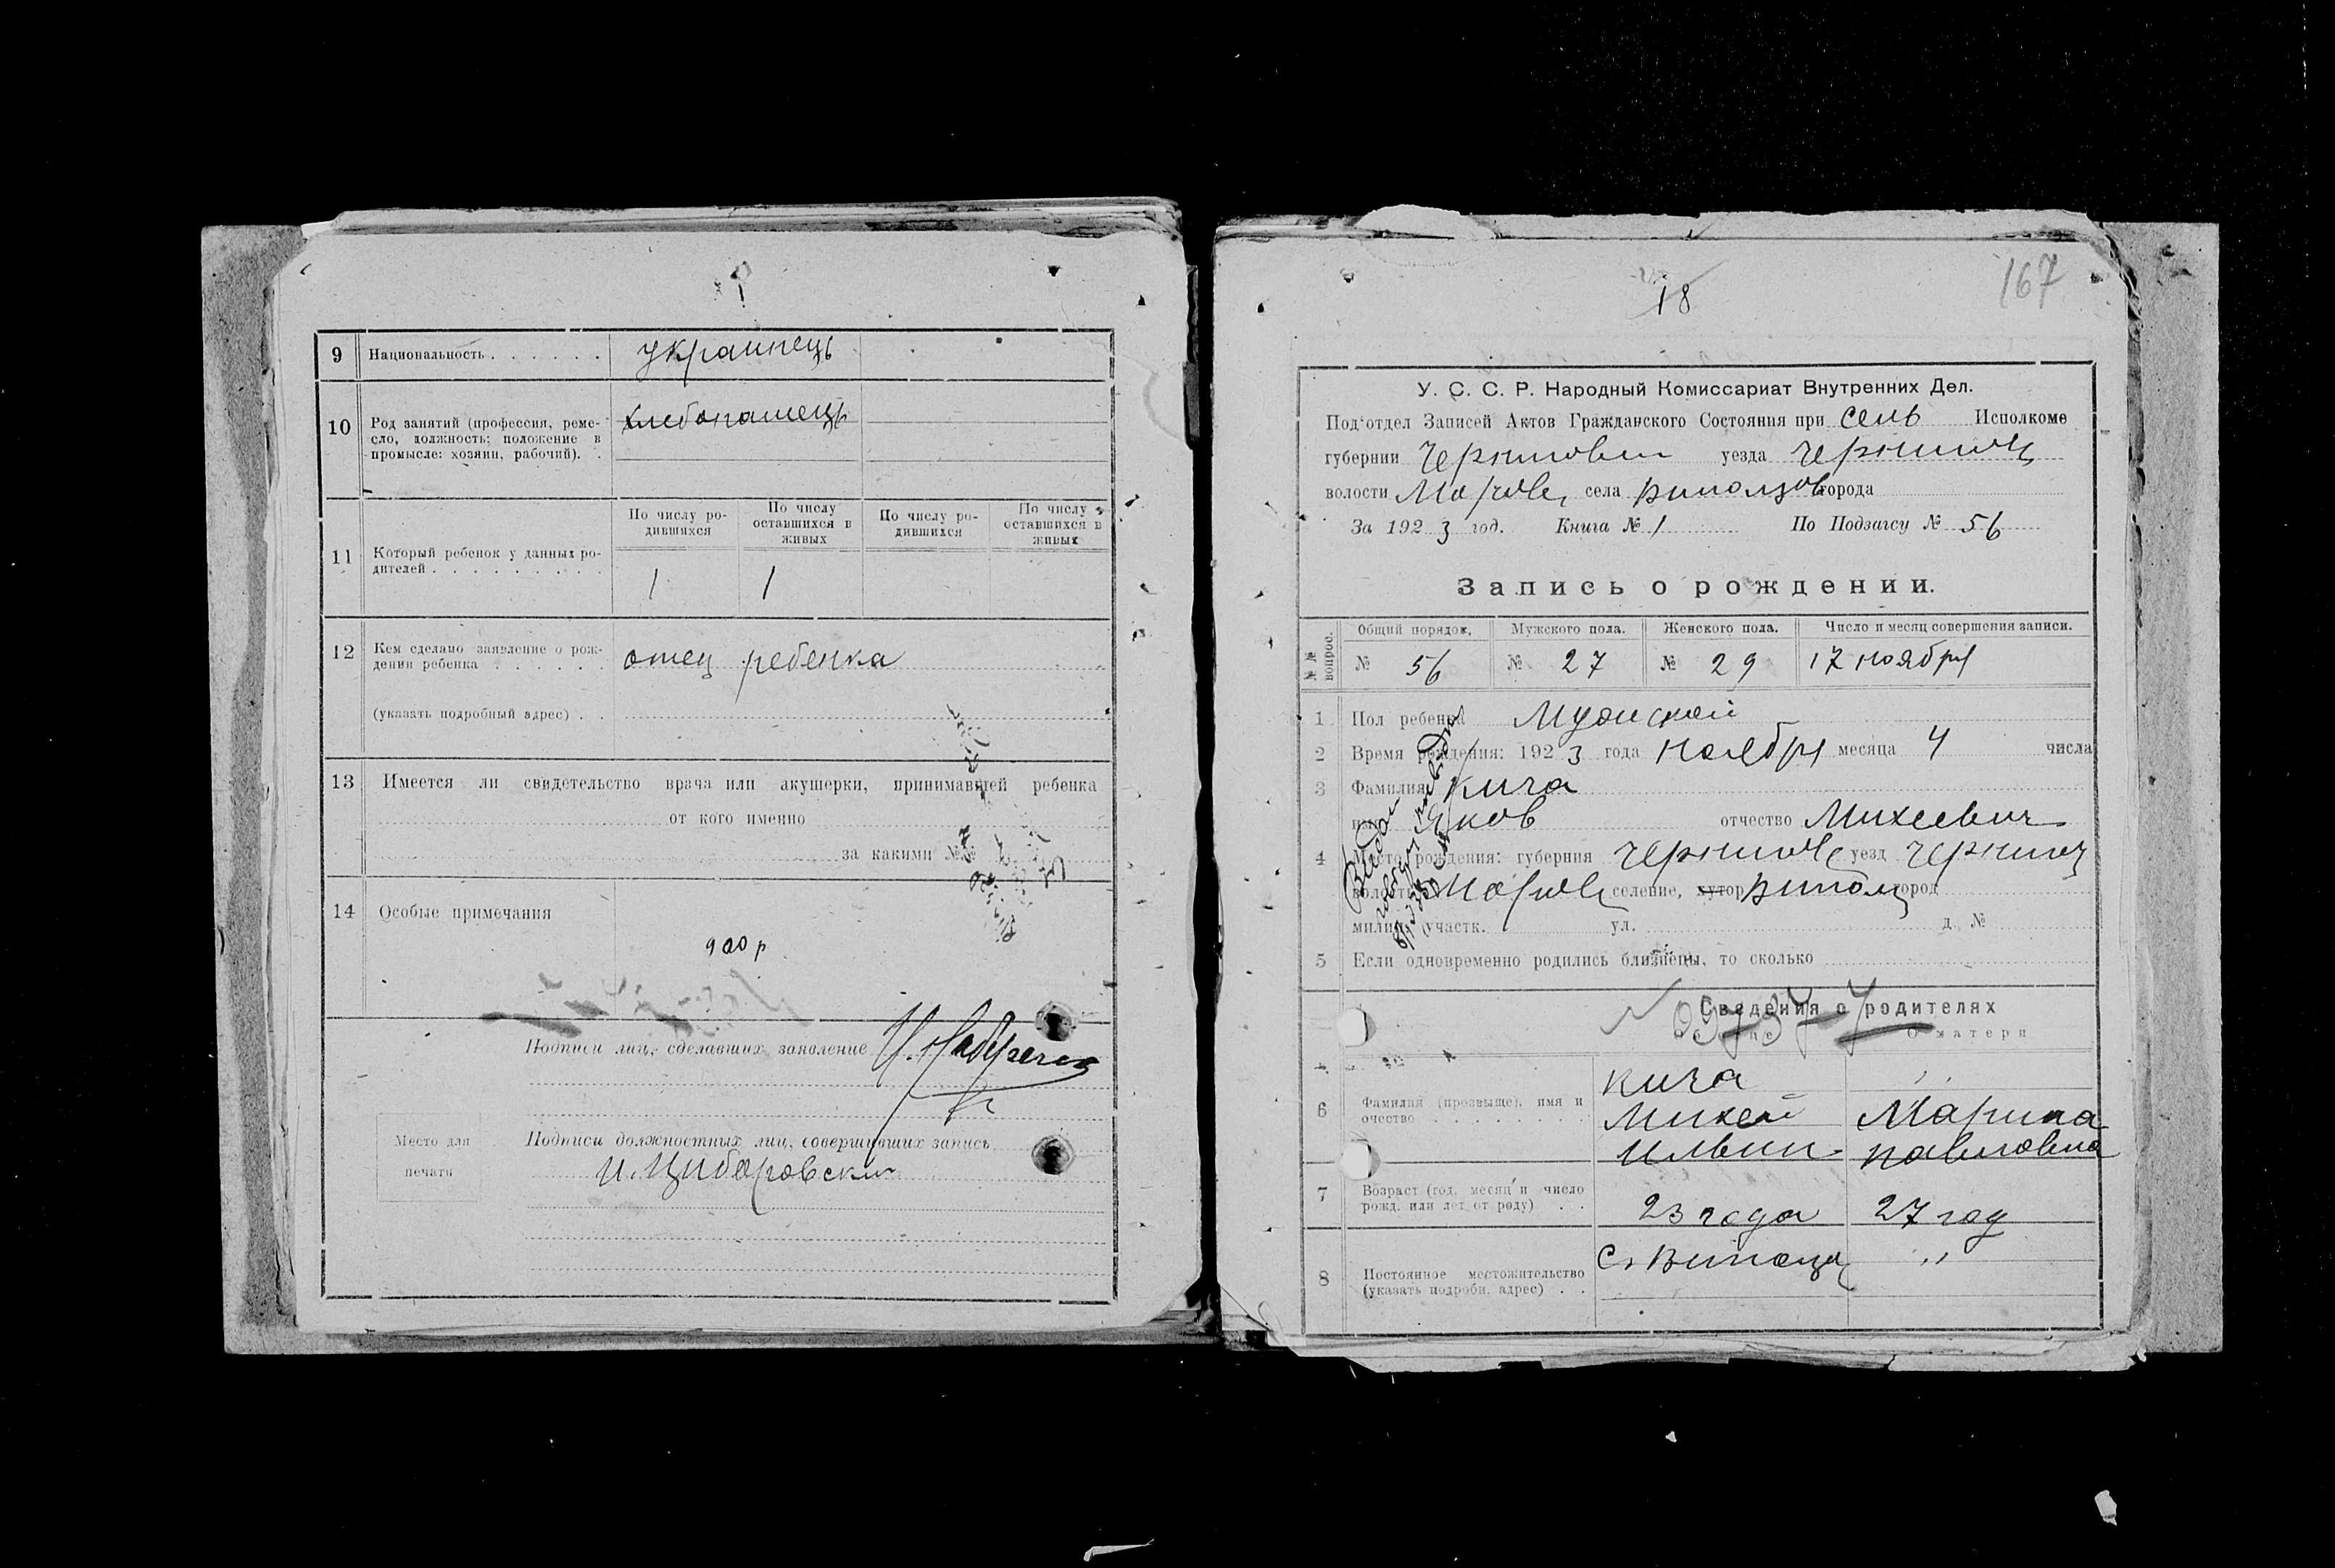 9 Национальность . . . . . . украинець
10 Род занятий (профессия, реме-
сло, должность; положение в
промысле: хозяин, рабочий). .
хлебопашець
11 Который ребенок у данных ро-
дителей . . . . . . . . .
По числу ро-
дившихся
По числу
оставшихся в
живых
По числу ро-
дившихся
По числу
оставшихся в
живых
1 1
12 Кем сделано заявление о рож-
дении ребенка . . . . . .
отец ребенка
(указать подробный адрес) . .
13 Имеется ли свидетельство врача или акушерки, принимавшей ребенка
от кого именно
за какими №№
14 Особые примечания
900 р
Подписи лиц, сделавших заявление
Место для
печати
Подписи должностных лиц, совершивших запись
167
18
У. С. С. Р. Народный Комиссариат Внутренних Дел.
Под'отдел Записей Актов Гражданского Состояния при Сель Исполкоме
губернии уезда
волости села города
За 1923 год. Книга № 1 По Подзагсу № 56
Запись о рождении.
№№ вопрос.
Общий порядок. Мужского пола. Женского пола. Число и месяц совершения записи.
№ 56 № 27 № 29 17 ноября
1 Пол ребенка Мужской
2 Время рождения: 1923 года ноября месяца 4 числа
3 Фамилия Кича
имя Яков отчество Михеевич
4 Место рождения: губерния уезд
волость селение, хутор город
милиц. участк. ул. д. №
5 Если одновременно родились близнецы, то сколько
Сведения о родителях
О матери
6 Фамилия (прозвище), имя и
очество . . . . . . . .
Кича
Михей Марина
Ильич Павловна
7 Возраст (год, месяц и число
рожд. или лет от роду) . .
23 года 27 год
8 Постоянное местожительство
(указать подробн. адрес) . .